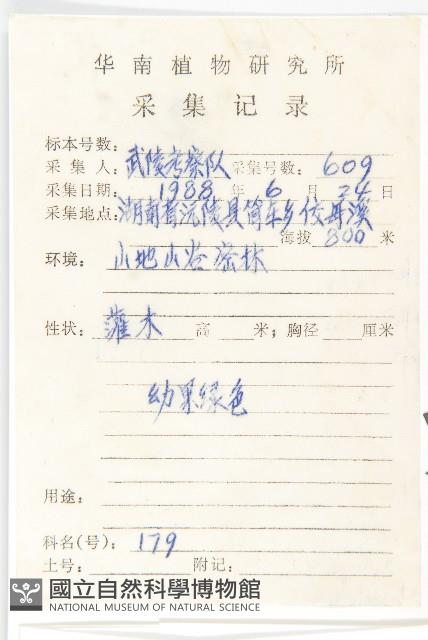 华南植物研究所
采集记录
标本号数:
采集人: 武陵考察队 采集号数: 609
采集日期: 1988 年 6 月 24 日
采集地点: 湖南省沅陵县筒车乡
海拔 800 米
环境: 山地山谷密林
性状: 灌木 高 米; 胸径 厘米
幼果绿色
用途:
科名(号): 179
土号: 附记:
國立自然科學博物館
NATIONAL MUSEUM OF NATURAL SCIENCE